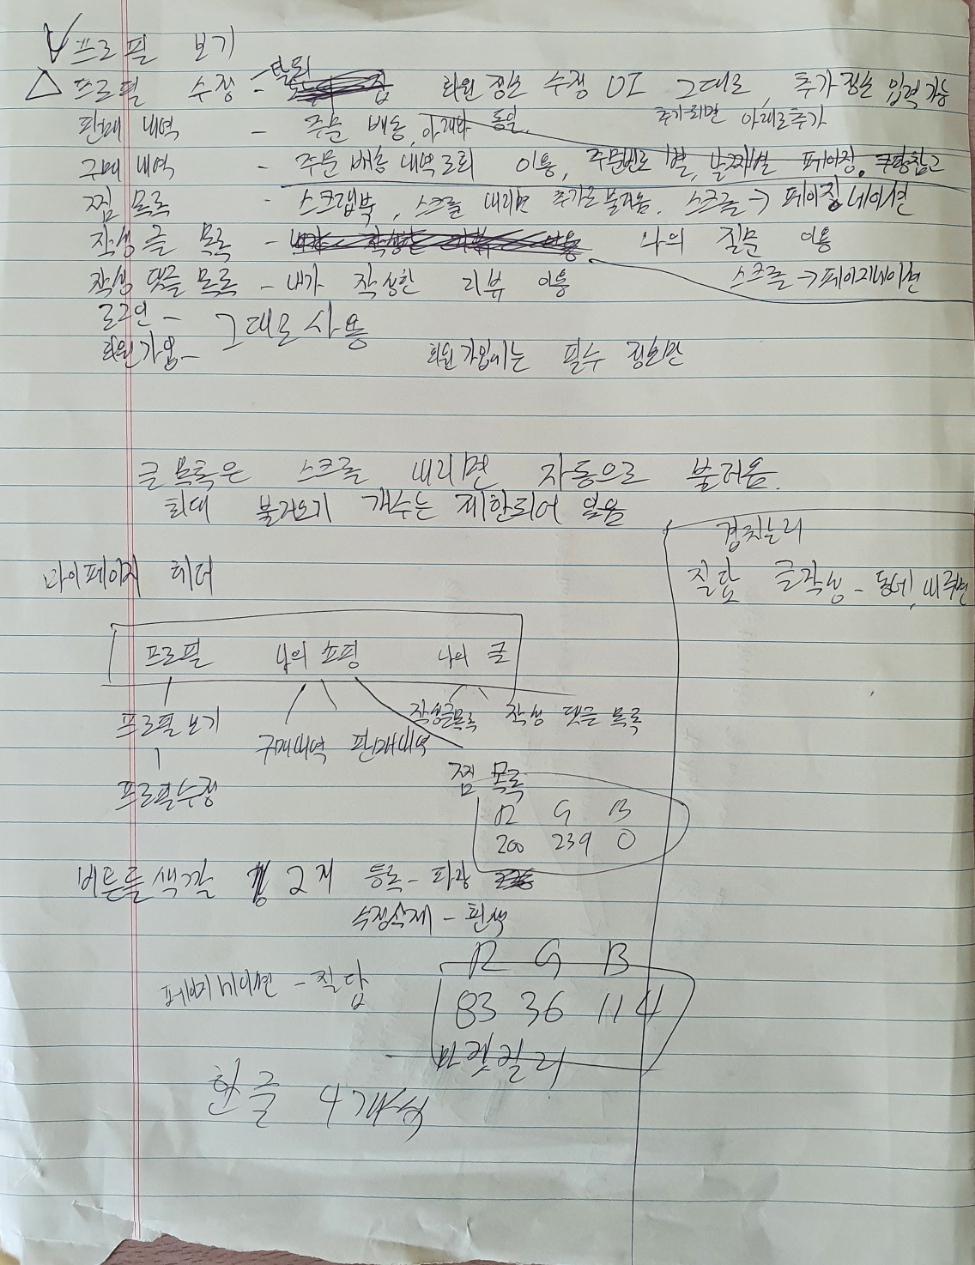 V 프로필 보기
△ 프로필 수정 - 탈퇴 회원 정보 수정 UI 그대로, 추가 정보 입력 가능
판매 내역 - 주문 배송, 아래와 동일. 추가되면 아래로 추가
구매 내역 - 주문 배송 내역 조회 이용, 주문번호별, 날짜별 페이징. 쿠팡참고
찜 목록 - 스크랩북, 스크롤 내리면 추가로 불러옴. 스크롤 → 페이징네이션
작성 글 목록 - 나의 질문 이용
작성 댓글 목록 - 내가 작성한 리뷰 이용 스크롤 → 페이지네이션
로그인 - 그대로 사용
회원가입 - 회원가입에는 필수 정보만
글 목록은 스크롤 내리면 자동으로 불러옴.
최대 불러오기 개수는 제한되어 있음
겹치는리
마이페이지 헤더
질답 글작성 - 동네, 내주변
프로필 나의 쇼핑 나의 글
프로필 보기 구매내역 판매내역 작성글목록 작성 댓글 목록
프로필수정 찜 목록
R G B
200 239 0
버튼들 색깔 2지 등록 - 파랑
수정삭제 - 흰색
R G B
페이지네이션 - 질답
83 36 114
마켓컬리
한글 4개씩